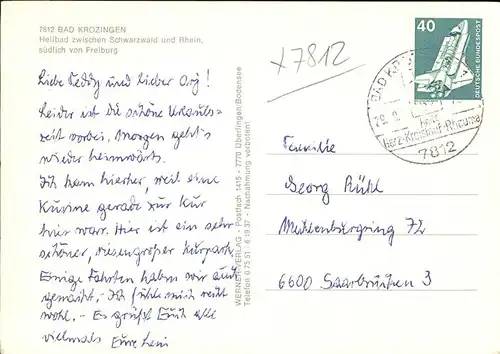 7812 BAD KROZINGEN
Heilbad zwischen Schwarzwald und Rhein,
südlich von Freiburg
7812
40
DEUTSCHE BUNDESPOST
BAD KRO
Herz-Kreislauf-Rheuma
7812
Liebe Teddy und lieber Org!
Leider ist die schöne Urlaubs-
zeit vorbei. Morgen geht's
wieder heimwärts.
Ich kam hierher, weil eine
Kusine gerade zur Kur
hier war. Hier ist ein sehr
schöner, riesengroßer Kurpark
Einige Fahrten haben wir auch
gemacht. - Ich fühle mich recht
wohl. - Es grüßt Euch alle
vielmals Eure
WERNER-VERLAG - Postfach 1415 - 7770 Überlingen/Bodensee
Telefon 0 75 51 - 6 19 37 - Nachahmung verboten!
Familie
Georg Rühl
Mühlenburgring 72
6600 Saarbrücken 3